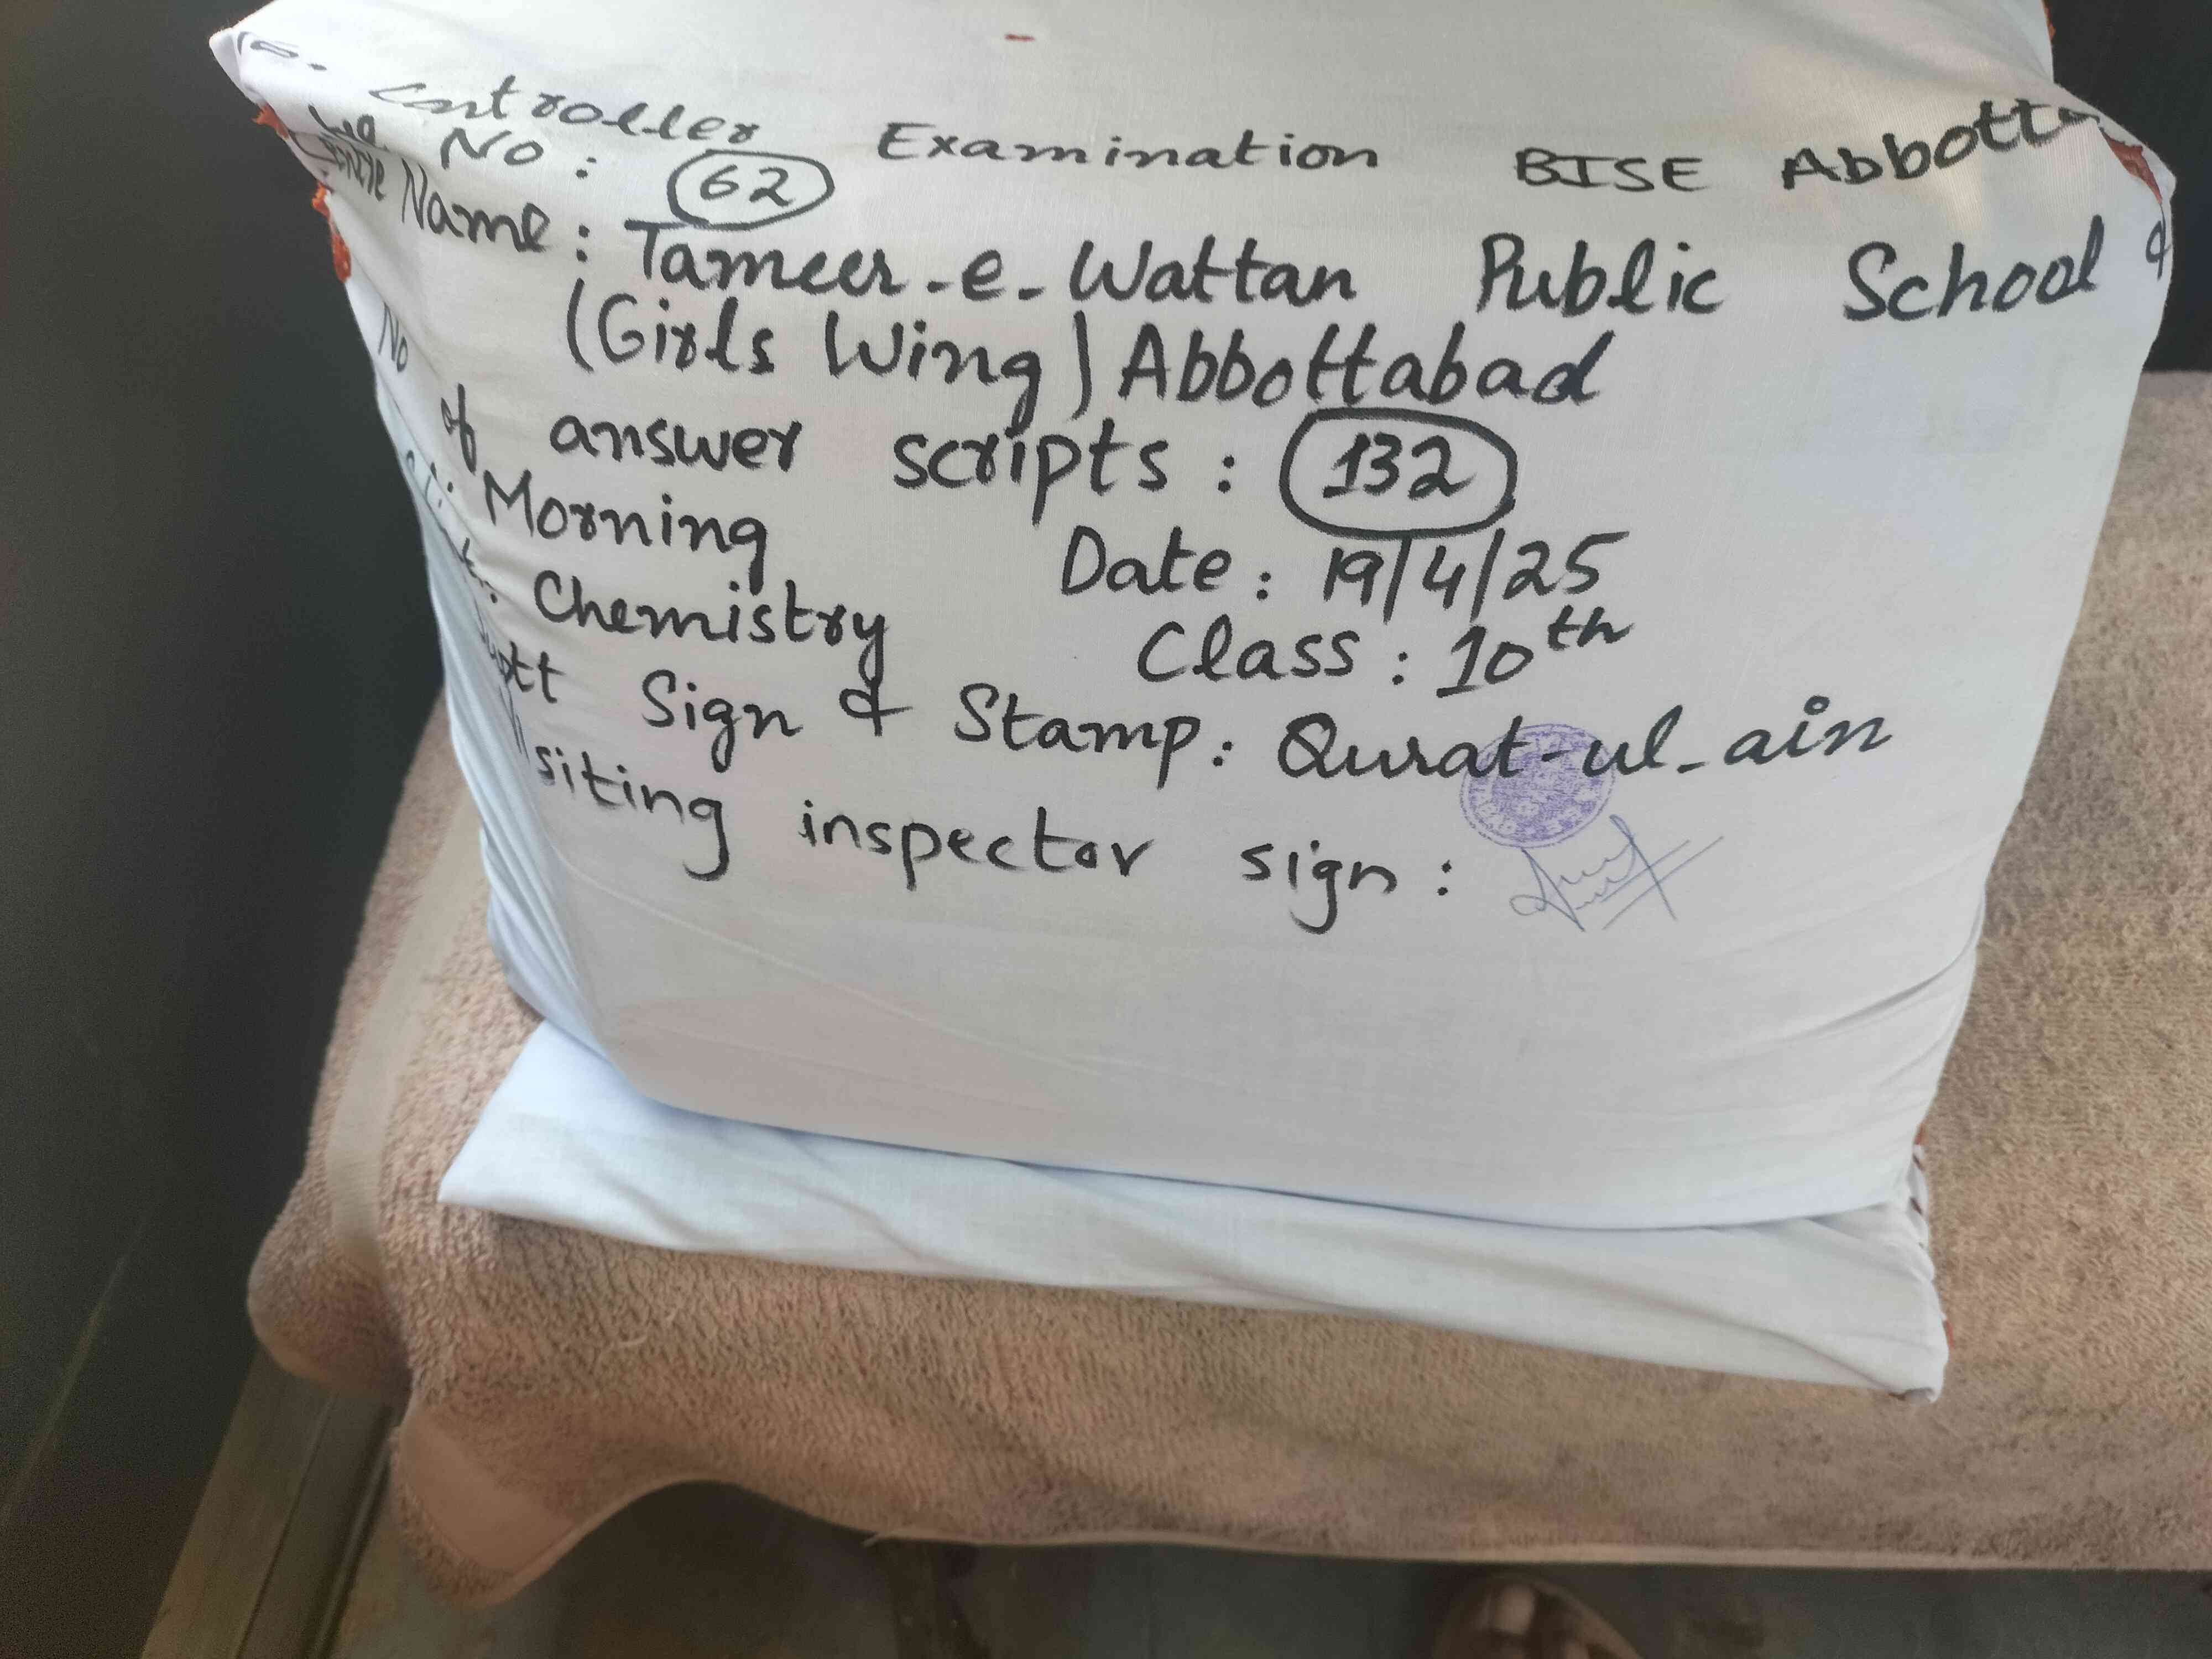 To. Controller Examination BISE Abbott
No: 62
Centre Name: Tameer-e-Wattan Public School &
(Girls Wing) Abbottabad
No of answer scripts: 132
Morning Date: 19/4/25
Chemistry Class: 10th
Suptt Sign & Stamp: Qurat-ul-ain
Visiting inspector sign: